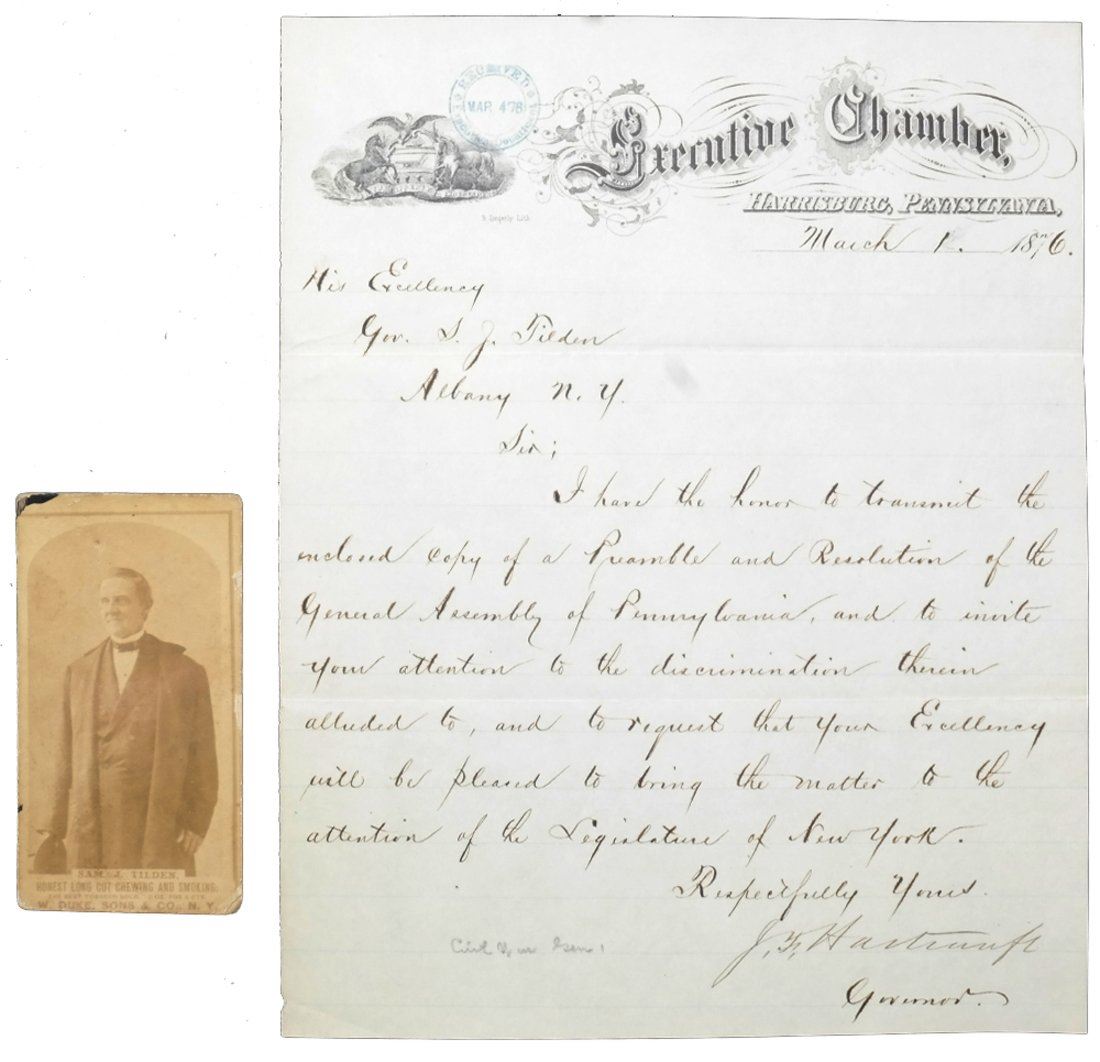 RECEIVED
MAR 4 76
Executive Chamber,
HARRISBURG, PENNSYLVANIA,
March 1. 1876.
His Excellency
Gov. S. J. Tilden
Albany N. Y.
Sir;
I have the honor to transmit the
enclosed copy of a Preamble and Resolution of the
General Assembly of Pennsylvania, and to invite
your attention to the discrimination therein
alluded to, and to request that your Excellency
will be pleased to bring the matter to the
attention of the Legislature of New York.
Respectfully Yours.
J. F. Hartranft
Governor.
Civil War Gen.
SAM. J. TILDEN,
HONEST LONG CUT CHEWING AND SMOKING.
W. DUKE, SONS & CO., N. Y.